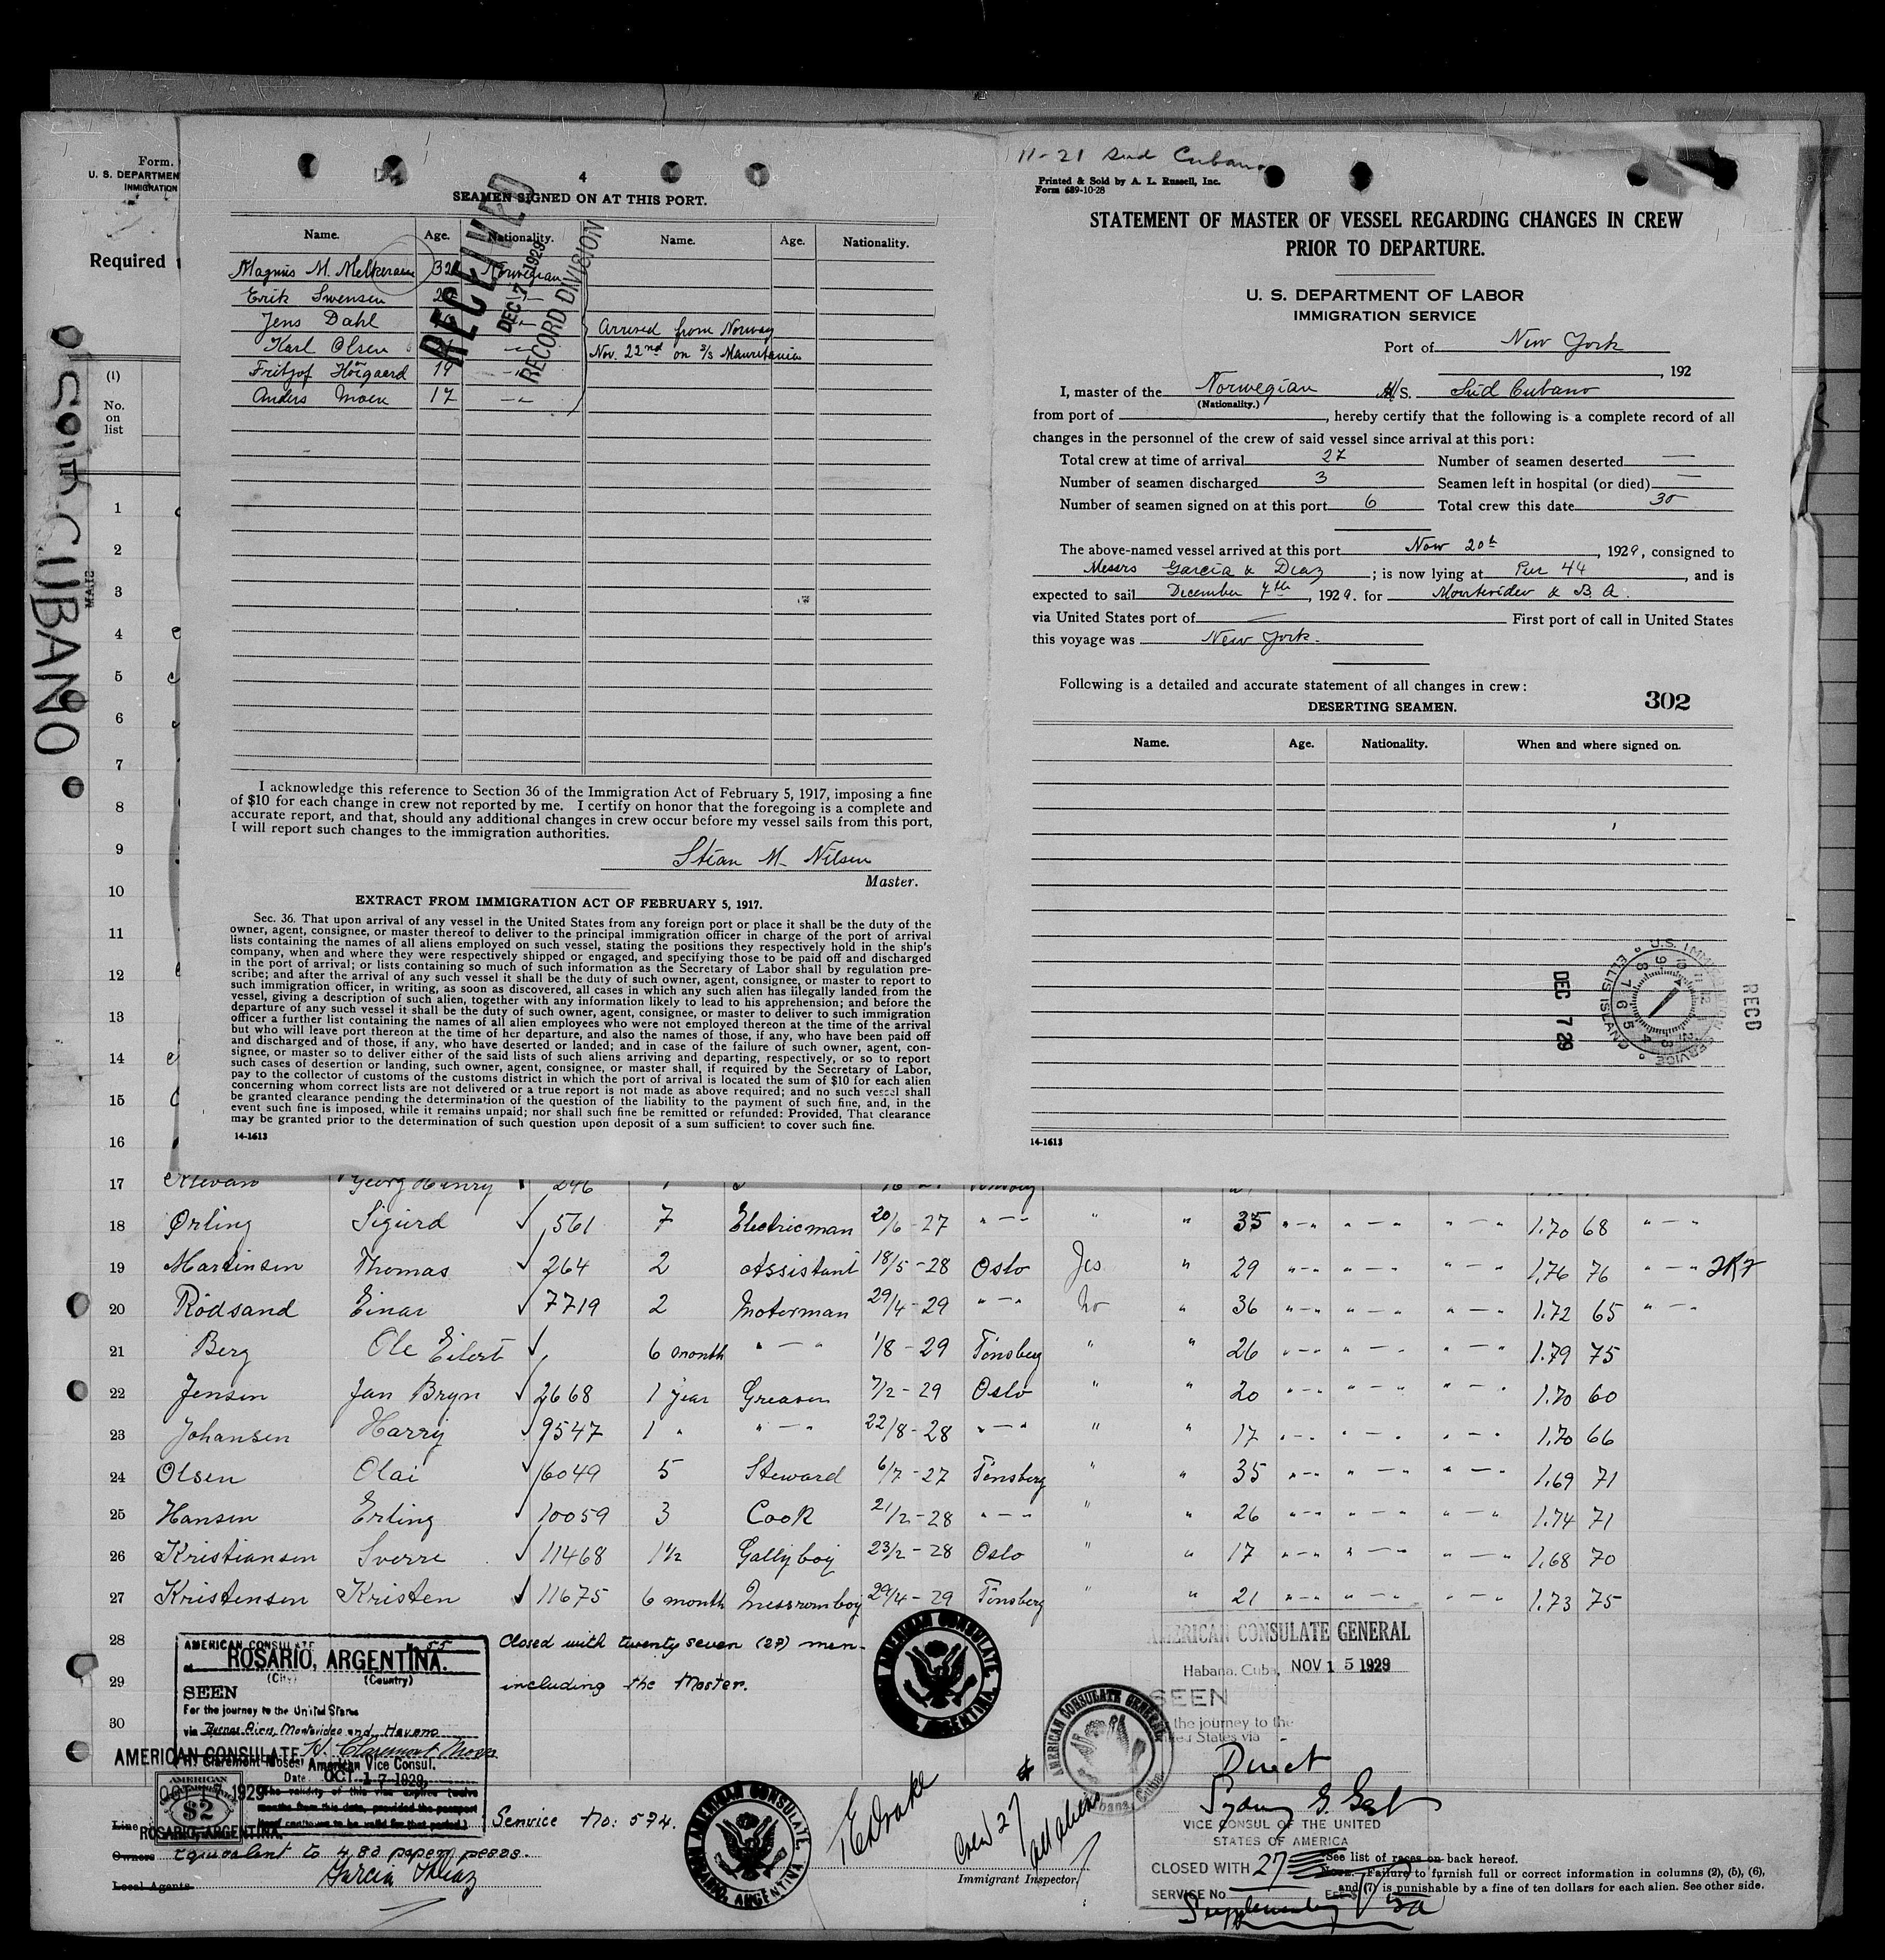 Form.
U. S. DEPARTMEN
IMMIGRATION
Required
(1)
No.
on
list
1
2
3
4
5
6
7
8
9
10
11
12
13
14
15
16
CUBANO
4
SEAMEN SIGNED ON AT THIS PORT.
Name. Age. Nationality. Name. Age. Nationality.
Magnus M. 32 Norwegian
Erik Swensen
Jens Dahl
Karl Olsen
Fritjof Höigaard 19 -"-
Anders Moen 17 -"-
Arrived from Norway
Nov. 22nd on S/S Mauretania
RECEIVED
DEC 7 1929
RECORD DIVISION
I acknowledge this reference to Section 36 of the Immigration Act of February 5, 1917, imposing a fine
of $10 for each change in crew not reported by me. I certify on honor that the foregoing is a complete and
accurate report, and that, should any additional changes in crew occur before my vessel sails from this port,
I will report such changes to the immigration authorities.
Stian M. Nilsen
Master.
EXTRACT FROM IMMIGRATION ACT OF FEBRUARY 5, 1917.
Sec. 36. That upon arrival of any vessel in the United States from any foreign port or place it shall be the duty of the
owner, agent, consignee, or master thereof to deliver to the principal immigration officer in charge of the port of arrival
lists containing the names of all aliens employed on such vessel, stating the positions they respectively hold in the ship's
company, when and where they were respectively shipped or engaged, and specifying those to be paid off and discharged
in the port of arrival; or lists containing so much of such information as the Secretary of Labor shall by regulation pre-
scribe; and after the arrival of any such vessel it shall be the duty of such owner, agent, consignee, or master to report to
such immigration officer, in writing, as soon as discovered, all cases in which any such alien has illegally landed from the
vessel, giving a description of such alien, together with any information likely to lead to his apprehension; and before the
departure of any such vessel it shall be the duty of such owner, agent, consignee, or master to deliver to such immigration
officer a further list containing the names of all alien employees who were not employed thereon at the time of the arrival
but who will leave port thereon at the time of her departure, and also the names of those, if any, who have been paid off
and discharged and of those, if any, who have deserted or landed; and in case of the failure of such owner, agent, con-
signee, or master so to deliver either of the said lists of such aliens arriving and departing, respectively, or so to report
such cases of desertion or landing, such owner, agent, consignee, or master shall, if required by the Secretary of Labor,
pay to the collector of customs of the customs district in which the port of arrival is located the sum of $10 for each alien
concerning whom correct lists are not delivered or a true report is not made as above required; and no such vessel shall
be granted clearance pending the determination of the question of the liability to the payment of such fine, and, in the
event such fine is imposed, while it remains unpaid; nor shall such fine be remitted or refunded: Provided, That clearance
may be granted prior to the determination of such question upon deposit of a sum sufficient to cover such fine.
14-1613
11-21 Sud Cubano
Printed & Sold by A. L. Russell, Inc.
Form 689-10-28
STATEMENT OF MASTER OF VESSEL REGARDING CHANGES IN CREW
PRIOR TO DEPARTURE.
U. S. DEPARTMENT OF LABOR
IMMIGRATION SERVICE
Port of New York
, 192
I, master of the Norwegian M/S. Sud Cubano
(Nationality.)
from port of , hereby certify that the following is a complete record of all
changes in the personnel of the crew of said vessel since arrival at this port:
Total crew at time of arrival 27 Number of seamen deserted —
Number of seamen discharged 3 Seamen left in hospital (or died) —
Number of seamen signed on at this port 6 Total crew this date 30
The above-named vessel arrived at this port Nov 20th , 1929, consigned to
Messrs Garcia & Diaz ; is now lying at Pier 44 , and is
expected to sail December 7th , 1929. for Montevideo & B A.
via United States port of — First port of call in United States
this voyage was New York.
Following is a detailed and accurate statement of all changes in crew:
302
DESERTING SEAMEN.
Name. Age. Nationality. When and where signed on.
U.S. IMMIGRATION SERVICE
ELLIS ISLAND
DEC 7 29
RECD
14-1613
17 Georg Henry 246
18 Ørling Sigurd ✓ 561 7 Electricman 20/6-27 "—" " " 35 "—" "—" "—" 1.70 68 "—"
19 Martinsen Thomas ✓ 264 2 Assistant 18/5-28 Oslo Yes " 29 "—" "—" "—" 1.76 76 "—"
20 Rödsand Einar ✓ 7719 2 Motorman 29/4-29 "—" No " 36 "—" "—" "—" 1.72 65 "—"
21 Berg Ole Eilert ✓ 6 month "—" 1/8-29 Tönsberg " " 26 "—" "—" "—" 1.79 75
22 Jensen Jan Bryn ✓ 2668 1 year Greaser 7/2-29 Oslo " " 20 "—" "—" "—" 1.70 60
23 Johansen Harry ✓ 9547 1 " "—" 22/8-28 "—" " " 17 "—" "—" "—" 1.70 66
24 Olsen Olai ✓ 6049 5 Steward 6/7-27 Tönsberg " " 35 "—" "—" "—" 1.69 71
25 Hansen Erling ✓ 10059 3 Cook 21/2-28 "—" " 26 "—" "—" "—" 1.74 71
26 Kristiansen Sverre ✓ 11468 1½ Gallyboy 23/2-28 Oslo " " 17 "—" "—" "—" 1.68 70
27 Kristensen Kristen ✓ 11675 6 month Messromboy 29/4-29 Tönsberg " " 21 "—" "—" "—" 1.73 75
28 Closed with twenty seven (27) men-
29 including the Master.
30
AMERICAN CONSULATE
at ROSARIO, ARGENTINA.
(City) (Country)
SEEN
For the journey to the United States
via Buenos Aires, Montevideo and Havana
AMERICAN CONSULATE
American Vice Consul.
Date OCT 17 1929
The validity of this visa expires twelve
months from this date, provided the passport
continues to be valid for that period.
$2
ROSARIO, ARGENTINA.
Service No: 574.
Line
Owners equivalent to 4.80 paper pesos.
Local Agents Garcia & Diaz
AMERICAN CONSULATE
ROSARIO, ARGENTINA
AMERICAN CONSULATE
ROSARIO, ARGENTINA
Crew 27
all aliens
Immigrant Inspector.
AMERICAN CONSULATE GENERAL
Habana, Cuba
AMERICAN CONSULATE GENERAL
Habana, Cuba, NOV 15 1929
SEEN
the journey to the
United States via
Direct
VICE CONSUL OF THE UNITED
STATES OF AMERICA
CLOSED WITH 27
SERVICE No
See list of races on back hereof.
Note.—Failure to furnish full or correct information in columns (2), (5), (6),
and (7) is punishable by a fine of ten dollars for each alien. See other side.